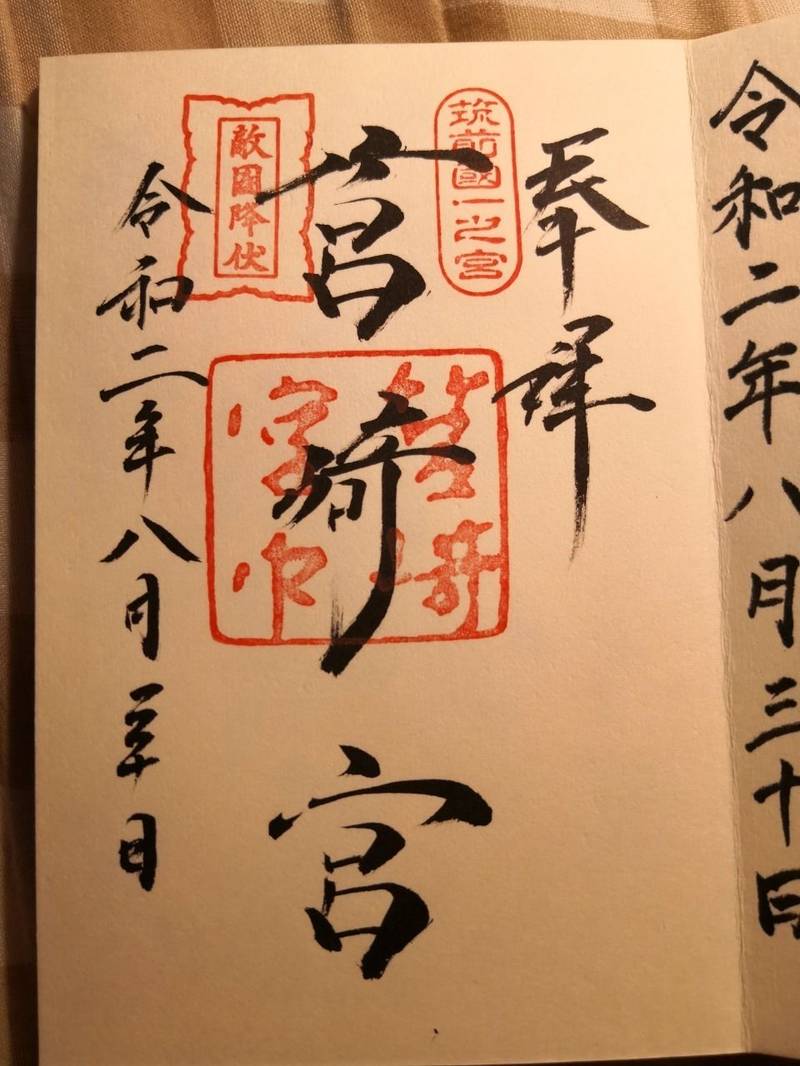 令和二年八月三十日
奉拝
筑前國一之宮
筥崎宮
筥崎宮印
敵國降伏
令和二年八月三十日